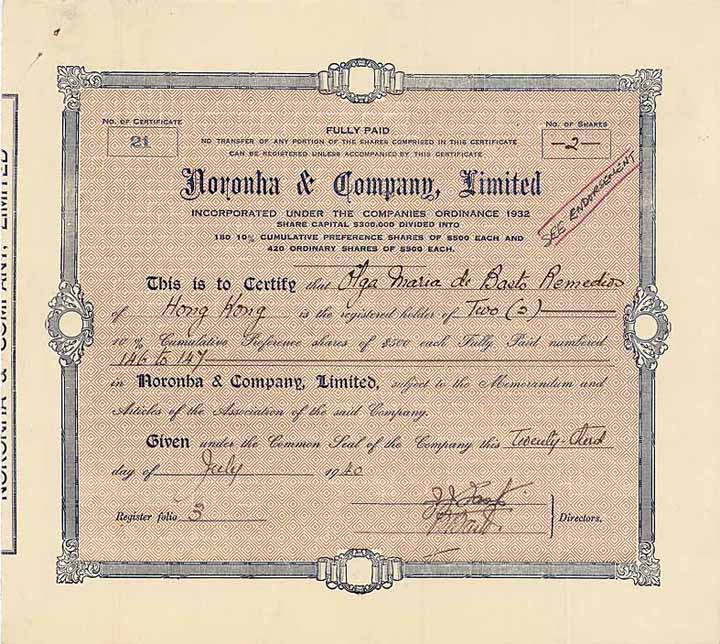 No. OF CERTIFICATE
21
FULLY PAID
No. OF SHARES
—2—
NO TRANSFER OF ANY PORTION OF THE SHARES COMPRISED IN THIS CERTIFICATE
CAN BE REGISTERED UNLESS ACCOMPANIED BY THIS CERTIFICATE
Noronha & Company, Limited
INCORPORATED UNDER THE COMPANIES ORDINANCE 1932
SHARE CAPITAL $300,000 DIVIDED INTO
180 10% CUMULATIVE PREFERENCE SHARES OF $500 EACH AND
420 ORDINARY SHARES OF $500 EACH.
SEE ENDORSEMENT
This is to Certify that Olga Maria de Basto Remedios
of Hong Kong is the registered holder of Two (2)
10 % Cumulative Preference shares of $500 each Fully Paid numbered
146 to 147
in Noronha & Company, Limited, subject to the Memorandum and
Articles of the Association of the said Company.
Given under the Common Seal of the Company this Twenty-third
day of July 1940
Register folio 3
Directors.
NORONHA & COMPANY, LIMITED